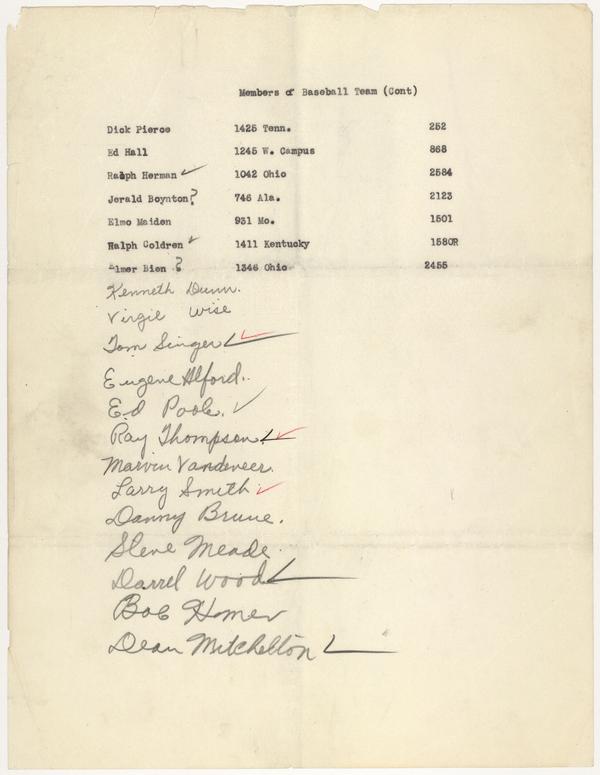 Members of Baseball Team (Cont)
Dick Pierce 1425 Tenn. 252
Ed Hall 1245 W. Campus 868
Ralph Herman ✓ 1042 Ohio 2584
Jerald Boynton ? 746 Ala. 2123
Elmo Maiden 931 Mo. 1501
Ralph Coldren ✓ 1411 Kentucky 1580R
Elmer Bien ? 1346 Ohio 2455
Kenneth Dunn.
Virgil Wise
Tom Singer ✓ ✓
Eugene Alford.
Ed Poole. ✓
Ray Thompson ✓ ✓
Marvin Vandeveer.
Larry Smith ✓
Danny Brune.
Steve Meade.
Darrel Wood ✓
Bob Homer
Dean Mitchelson ✓